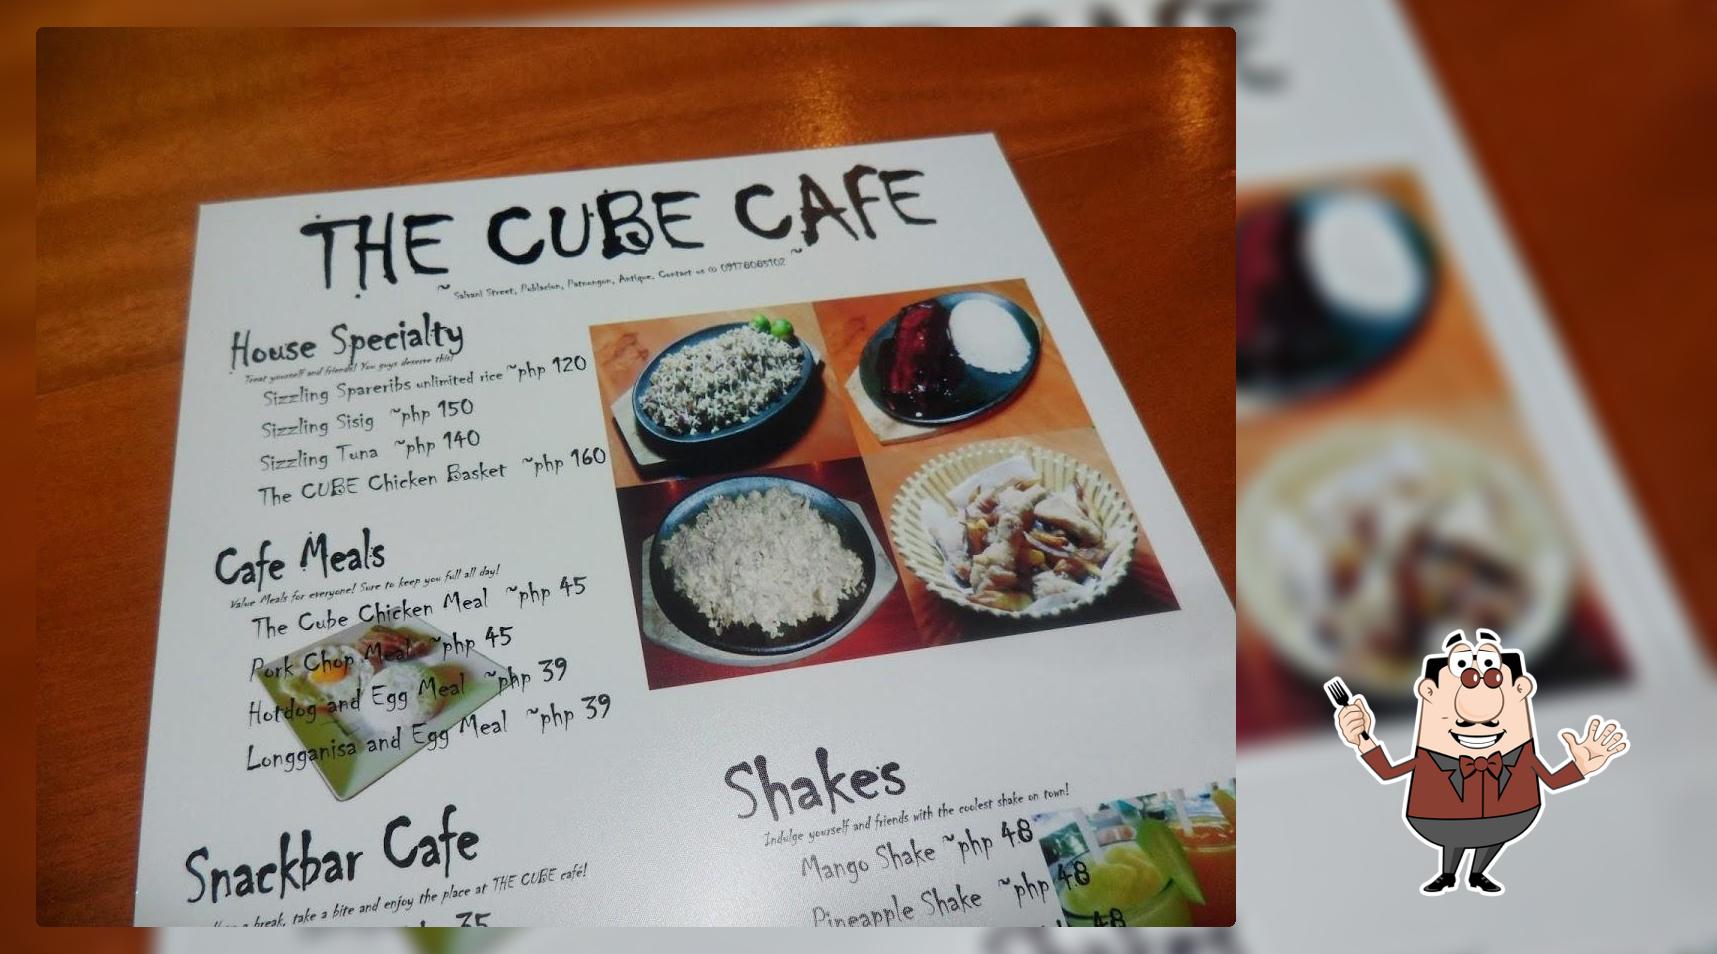 THE CUBE CAFE
~ Salvani Street, Poblacion, Patnongon, Antique. Contact us @ 09178085102 ~
House Specialty
Treat yourself and friends! You guys deserve this!
Sizzling Spareribs unlimited rice ~php 120
Sizzling Sisig ~php 150
Sizzling Tuna ~php 140
The CUBE Chicken Basket ~php 160
Cafe Meals
Value Meals for everyone! Sure to keep you full all day!
The Cube Chicken Meal ~php 45
Pork Chop Meal ~php 45
Hotdog and Egg Meal ~php 39
Longganisa and Egg Meal ~php 39
Snackbar Cafe
a break, take a bite and enjoy the place at THE CUBE café!
35
Shakes
Indulge yourself and friends with the coolest shake on town!
Mango Shake ~php 48
Pineapple Shake ~php 48
48